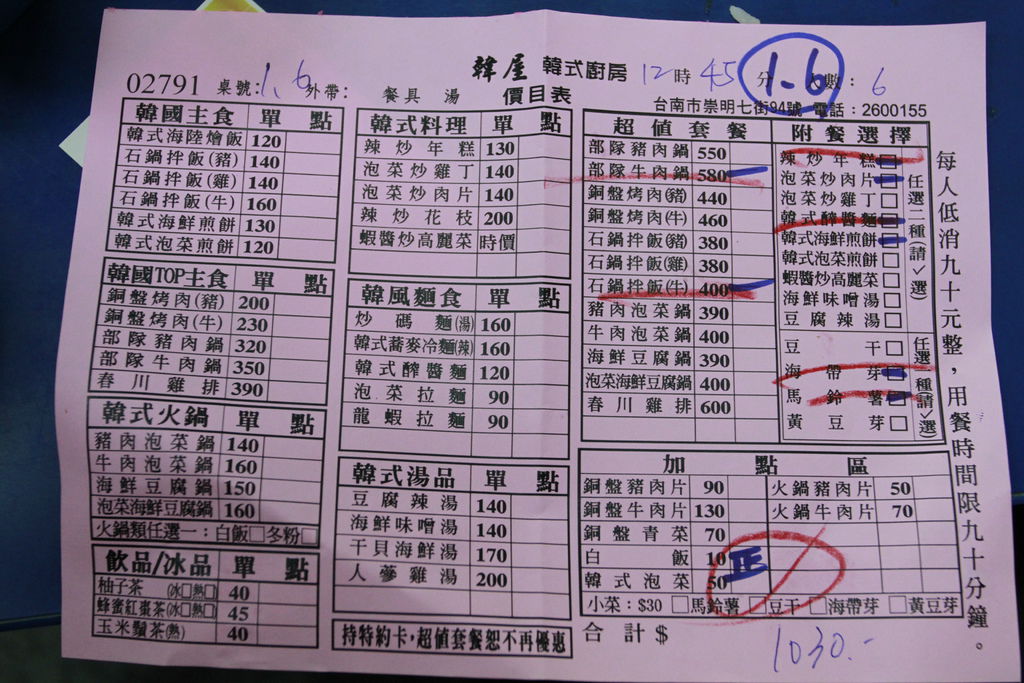 韓屋 韓式廚房 12時45分 1.6 人數:6
02791 桌號:1.6 外帶: 餐具 湯 價目表 台南市崇明七街94號 電話:2600155
韓國主食 單 點
韓式海陸燴飯 120
石鍋拌飯(豬) 140
石鍋拌飯(雞) 140
石鍋拌飯(牛) 160
韓式海鮮煎餅 130
韓式泡菜煎餅 120
韓國TOP主食 單 點
銅盤烤肉(豬) 200
銅盤烤肉(牛) 230
部隊豬肉鍋 320
部隊牛肉鍋 350
春川雞排 390
韓式火鍋 單 點
豬肉泡菜鍋 140
牛肉泡菜鍋 160
海鮮豆腐鍋 150
泡菜海鮮豆腐鍋 160
火鍋類任選一:白飯□冬粉□
飲品/冰品 單 點
柚子茶 (冰□熱□) 40
蜂蜜紅棗茶(冰□熱□) 45
玉米鬚茶(熱) 40
韓式料理 單 點
辣炒年糕 130
泡菜炒雞丁 140
泡菜炒肉片 140
辣炒花枝 200
蝦醬炒高麗菜 時價
韓風麵食 單 點
炒碼麵(湯) 160
韓式蕎麥冷麵(辣) 160
韓式醡醬麵 120
泡菜拉麵 90
龍蝦拉麵 90
韓式湯品 單 點
豆腐辣湯 140
海鮮味噌湯 140
干貝海鮮湯 170
人蔘雞湯 200
持特約卡,超值套餐恕不再優惠
超值套餐
部隊豬肉鍋 550
部隊牛肉鍋 580
銅盤烤肉(豬) 440
銅盤烤肉(牛) 460
石鍋拌飯(豬) 380
石鍋拌飯(雞) 380
石鍋拌飯(牛) 400
豬肉泡菜鍋 390
牛肉泡菜鍋 400
海鮮豆腐鍋 390
泡菜海鮮豆腐鍋 400
春川雞排 600
附餐選擇
辣炒年糕□
泡菜炒肉片□
泡菜炒雞丁□
韓式醡醬麵□
韓式海鮮煎餅□
韓式泡菜煎餅□
蝦醬炒高麗菜□
海鮮味噌湯□
豆腐辣湯□
任選二種(請✓選)
豆干□
海帶芽□
馬鈴薯□
黃豆芽□
任選一種(請✓選)
加點區
銅盤豬肉片 90 火鍋豬肉片 50
銅盤牛肉片 130 火鍋牛肉片 70
銅盤青菜 70
白飯 10 正
韓式泡菜 50
小菜:$30 □馬鈴薯 □豆干 □海帶芽 □黃豆芽
合計$ 1030.-
每人低消九十元整,用餐時間限九十分鐘。